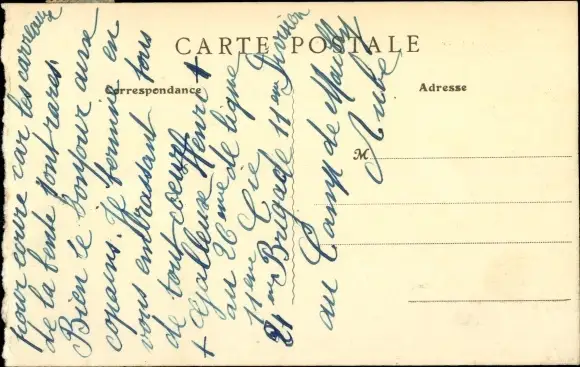 CARTE POSTALE
Correspondance
Adresse
M
pour écrire car les carreaux
de la tente sont rares.
Bien le bonjour aux
copains. Je termine en
vous embrassant tous
de tout coeur
+ Henri +
au 26 eme de ligne
11 eme Cie
21 eme Brigade 11 eme Division
au Camp de Mailly
Aube